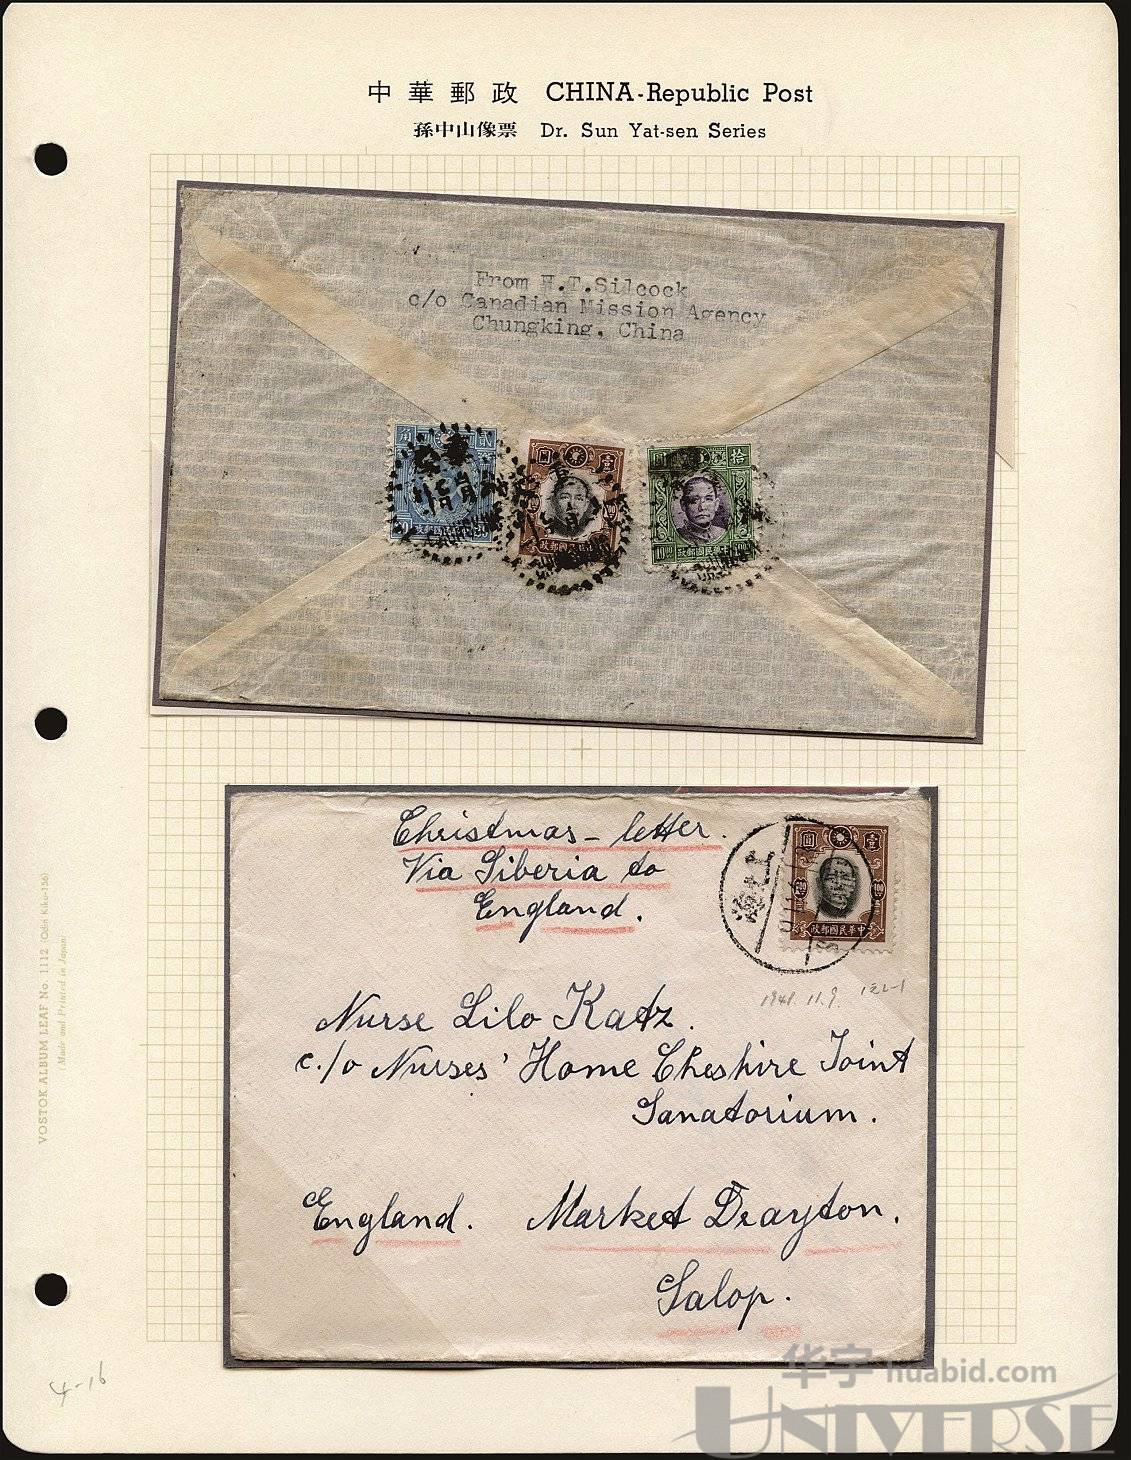 中華郵政 CHINA-Republic Post
孫中山像票 Dr. Sun Yat-sen Series
From H.T.Silcock
c/o Canadian Mission Agency
Chungking, China
角 貳
圓 壹
政郵國民
拾
政郵國民華中
Christmas - letter.
Via Siberia to
England.
上海
圓 壹
政郵國民華中
1941. 11. 9.
Nurse Lilo Katz.
c./o Nurses' Home Cheshire Joint
Sanatorium.
England. Market Drayton.
Salop.
VOSTOK ALBUM LEAF No. 1112
(Made and Printed in Japan)
4-16
华宇 huabid.com
UNIVERSE